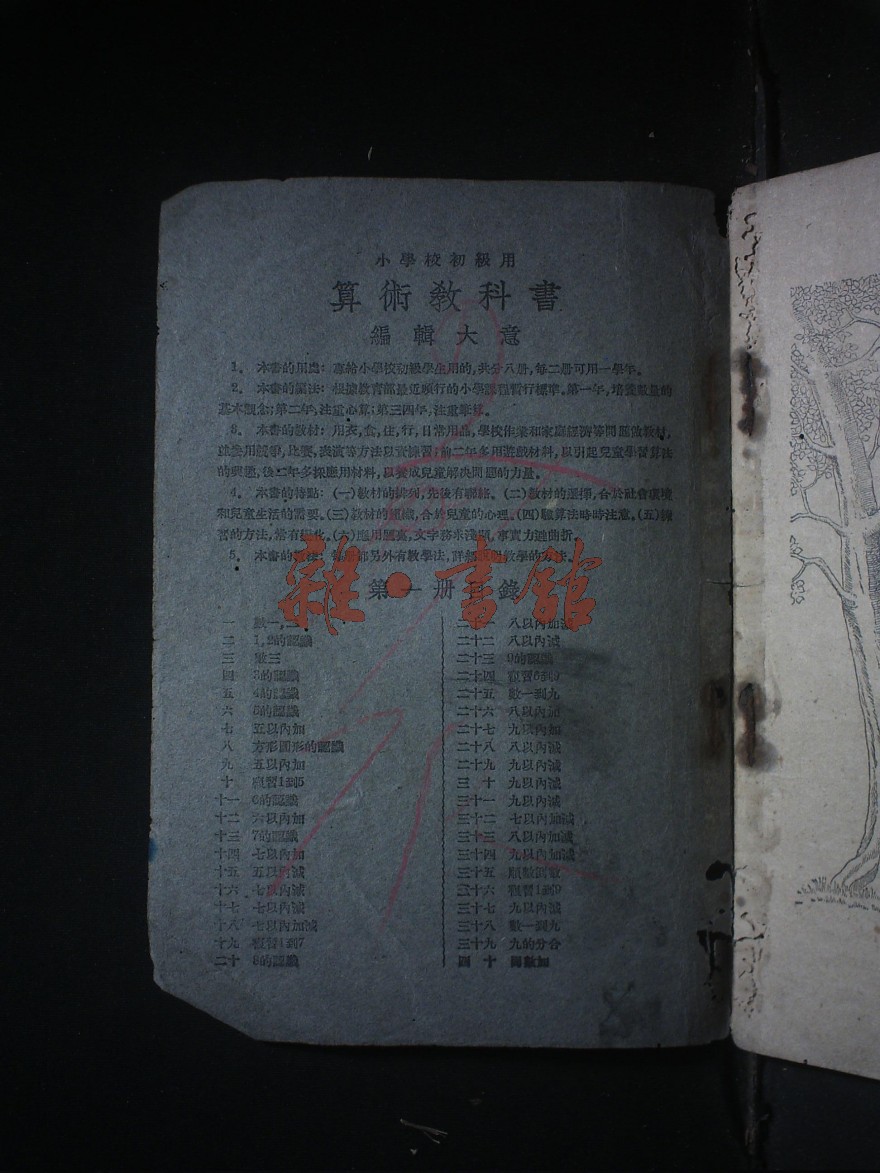 小學校初級用
算術教科書
編輯大意
1. 本書的用處：專給小學校初級學生用的，共分八册，每二册可用一學年。
2. 本書的編法：根據教育部最近頒行的小學課程暫行標準。第一年，培養數量的
基本觀念；第二年，注重心算；第三四年，注重筆算。
3. 本書的教材：用衣，食，住，行，日常用品，學校作業和家庭經濟等問題做教材，
並兼用競爭，比賽，表演等方法以資練習；前二年多用遊戲材料，以引起兒童學習算法
的興趣，後二年多採應用材料，以養成兒童解決問題的力量。
4. 本書的特點：(一)教材的排列，先後有聯絡。(二)教材的選擇，合於社會環境
和兒童生活的需要。(三)教材的組織，合於兒童的心理。(四)驗算法時時注意。(五)練
習的方法，常有變化。(六)應用題，文字務求淺顯，事實力避曲折。
5. 本書的教授：每册都另外有教學法，詳細說明教學的方法。
第一册目錄
雜·書館
一 數一，二
二 1，2的認識
三 數三
四 3的認識
五 4的認識
六 5的認識
七 五以內加
八 方形圓形的認識
九 五以內加
十 溫習1到5
十一 6的認識
十二 六以內加
十三 7的認識
十四 七以內加
十五 五以內減
十六 七以內減
十七 七以內減
十八 七以內加減
十九 溫習1到7
二十 8的認識
二十一 八以內加減
二十二 八以內減
二十三 9的認識
二十四 溫習6到9
二十五 數一到九
二十六 八以內加
二十七 九以內加
二十八 八以內減
二十九 九以內減
三十 九以內減
三十一 九以內減
三十二 七以內加減
三十三 八以內加減
三十四 九以內加減
三十五 順數倒數
三十六 溫習1到9
三十七 九以內減
三十八 數一到九
三十九 九的分合
四十 同數加